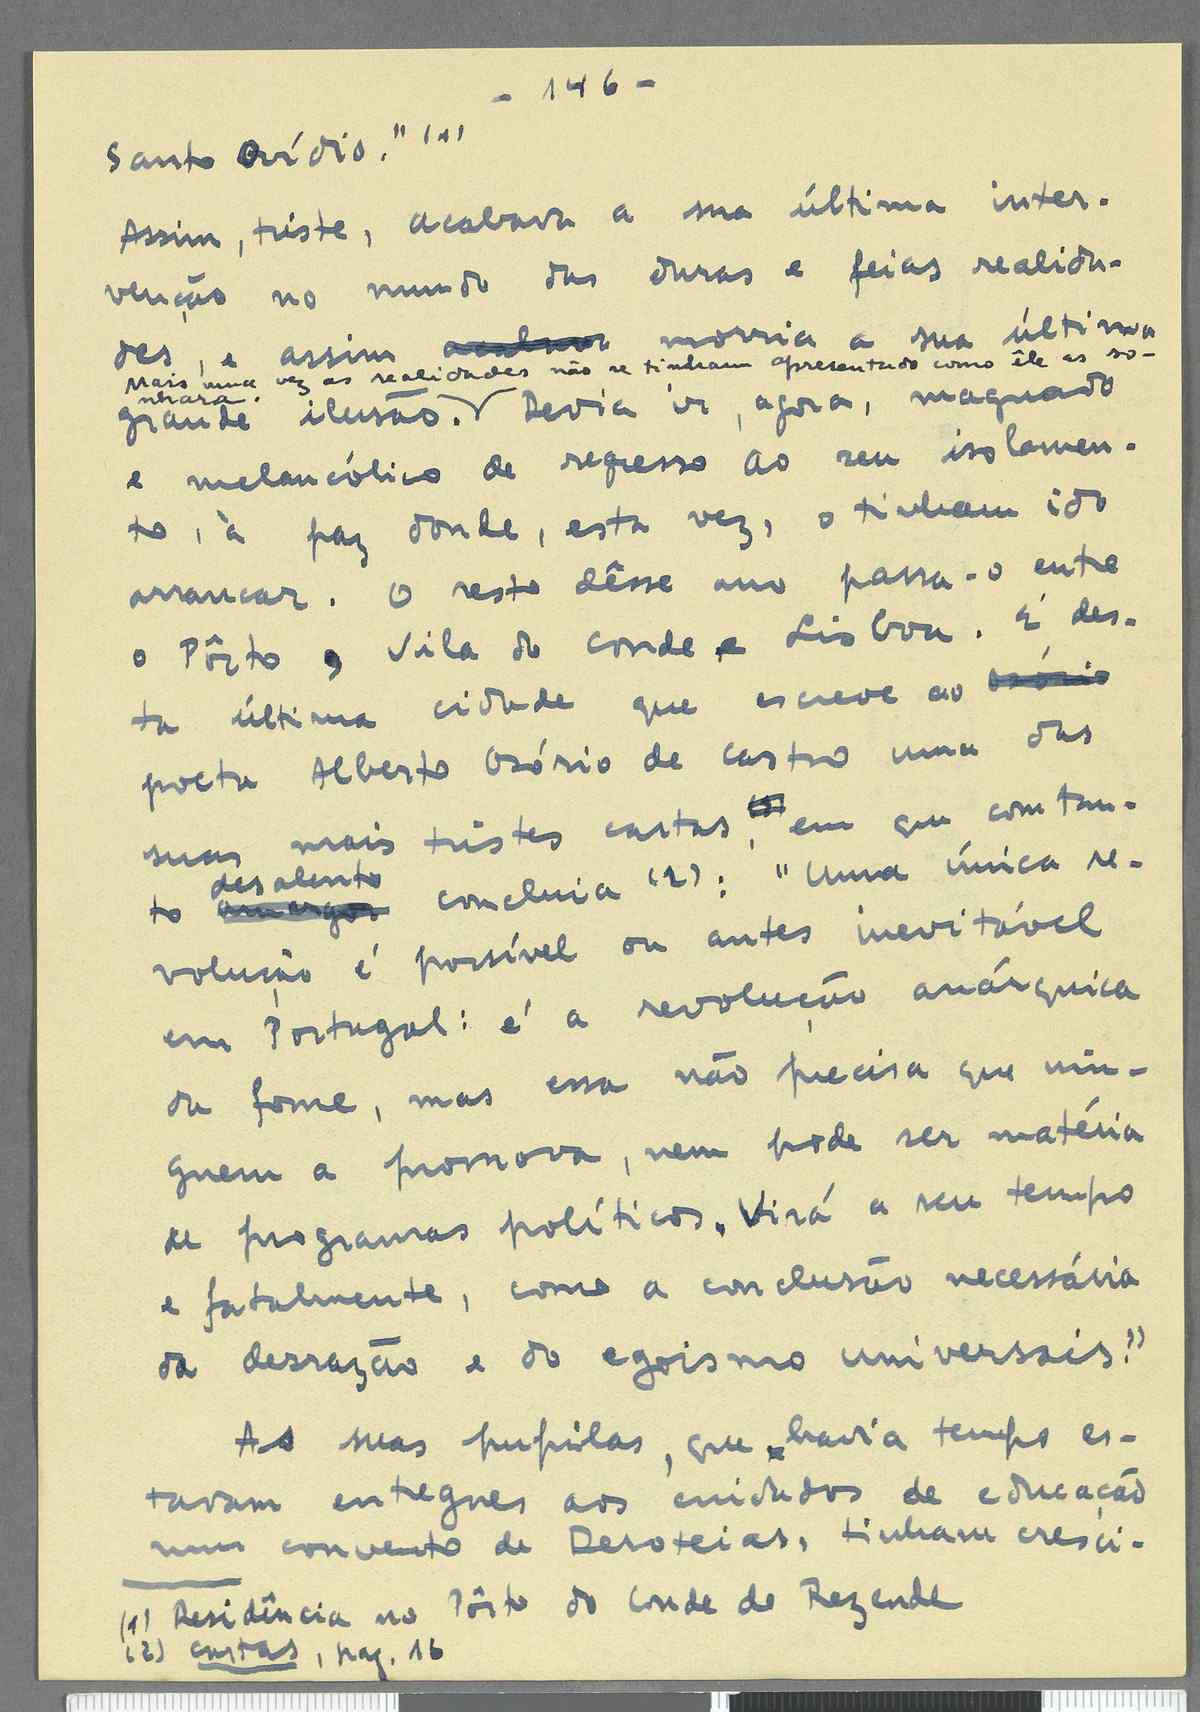 - 146 -
Santo Ovídio." (1)
Assim, triste, acabava a sua última inter-
venção no mundo das duras e feias realida-
des, e assim morria a sua última
Mais uma vez as realidades não se tinham apresentado como êle as so-
nhara.
grande ilusão. Devia ir, agora, maguado
e melancólico de regresso ao seu isolamen-
to, à paz donde, esta vez, o tinham ido
arrancar. O resto dêsse ano passa-o entre
o Pôrto, Vila do Conde e Lisboa. É des-
ta última cidade que escreve ao Osório
poeta Alberto Osório de Castro uma das
suas mais tristes cartas, em que com tan-
desalento
to amargor concluia (2): "Uma única re-
volução é possível ou antes inevitável
em Portugal: é a revolução anárquica
da fome, mas essa não precisa que nin-
guem a promova, nem pode ser matéria
de programas políticos. Virá a seu tempo
e fatalmente, como a conclusão necessária
da desrazão e do egoismo universais."
As suas pupilas, que havia tempo es-
tavam entregues aos cuidados de educação
num convento de Doroteias, tinham cresci-
(1) Residência no Pôrto do Conde de Rezende
(2) Cartas, pag. 16